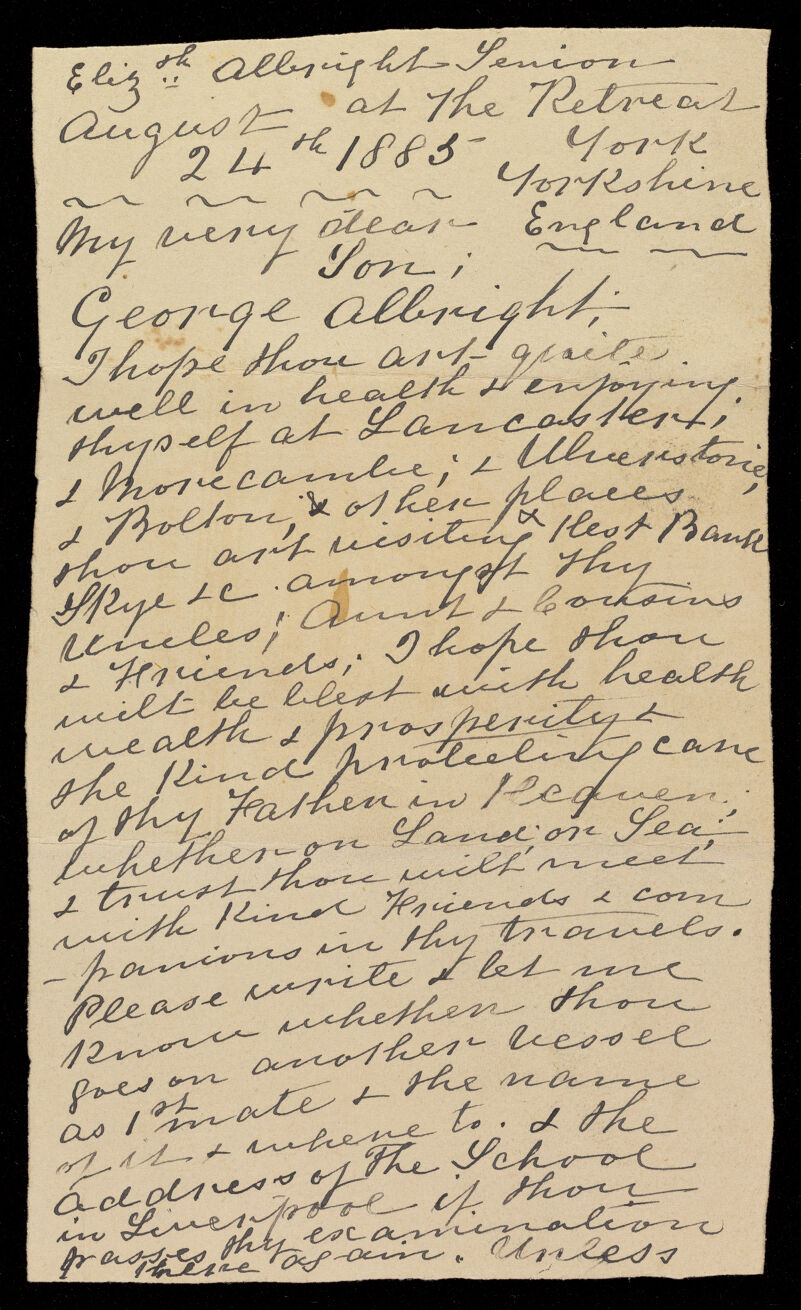 Eliz.th Albright Senior
August at the Retreat
24th 1885 York
Yorkshire
My very dear England
Son;
George Albright;
I hope thou art quite
well in health & enjoying
thyself at Lancaster;
& Morecambe; & Ulverstone,
& Bolton; & other places
thou art visiting & Hest Bank
Skye &c. amongst thy
Uncles; Aunt & Cousins
& Friends; I hope thou
wilt be blest with health
wealth & prosperity &
the Kind protecting care
of thy Father in Heaven;
whether on Land; or Sea;
& trust thou wilt meet
with Kind Friends & com
-panions in thy travels.
Please write & let me
Know whether thou
goes on another vessel
as 1st mate & the name
of it & where to. & the
address of The School
in Liverpool if thou
passes thy examination
there again. Unless